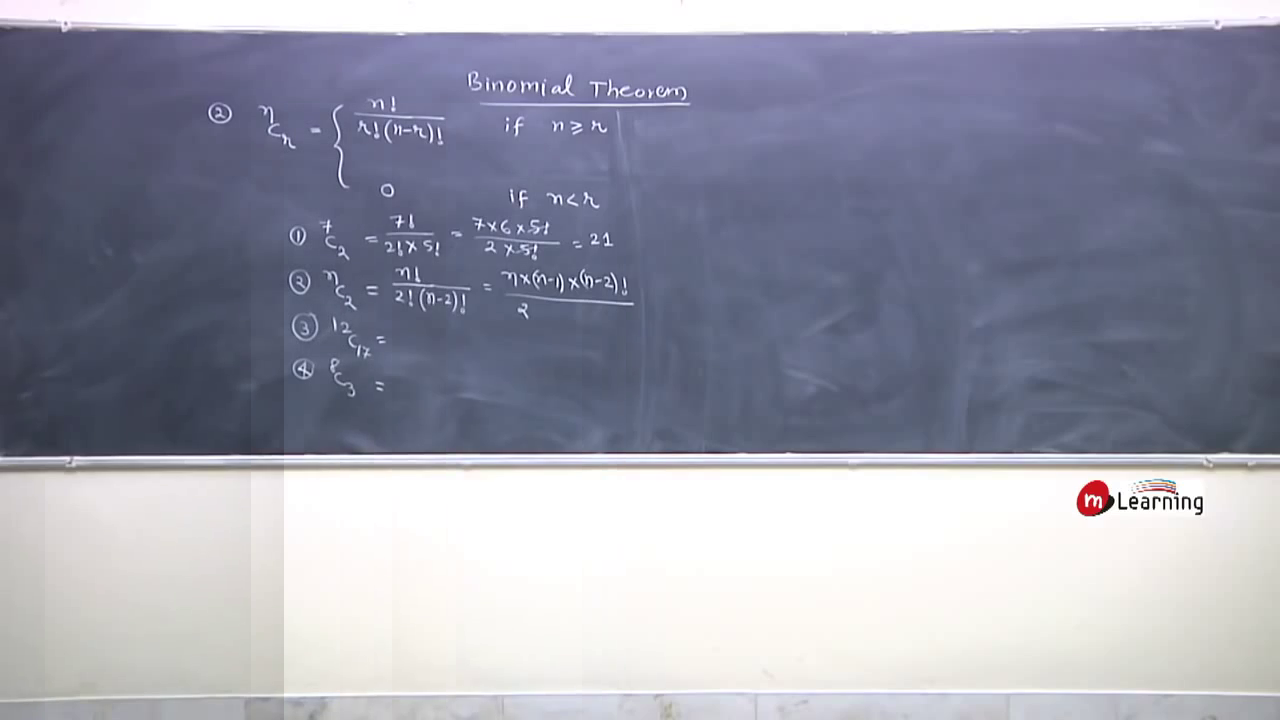 Binomial Theorem
② ⁿCᵣ = { n! / r!(n-r)! if n ≥ r
0 if n < r
① ⁷C₂ = 7! / 2!×5! = 7×6×5! / 2×5! = 21
② ⁿC₂ = n! / 2!(n-2)! = n×(n-1)×(n-2)! / 2
③ ¹²C₁₇ =
④ ⁸C₃ =
m Learning